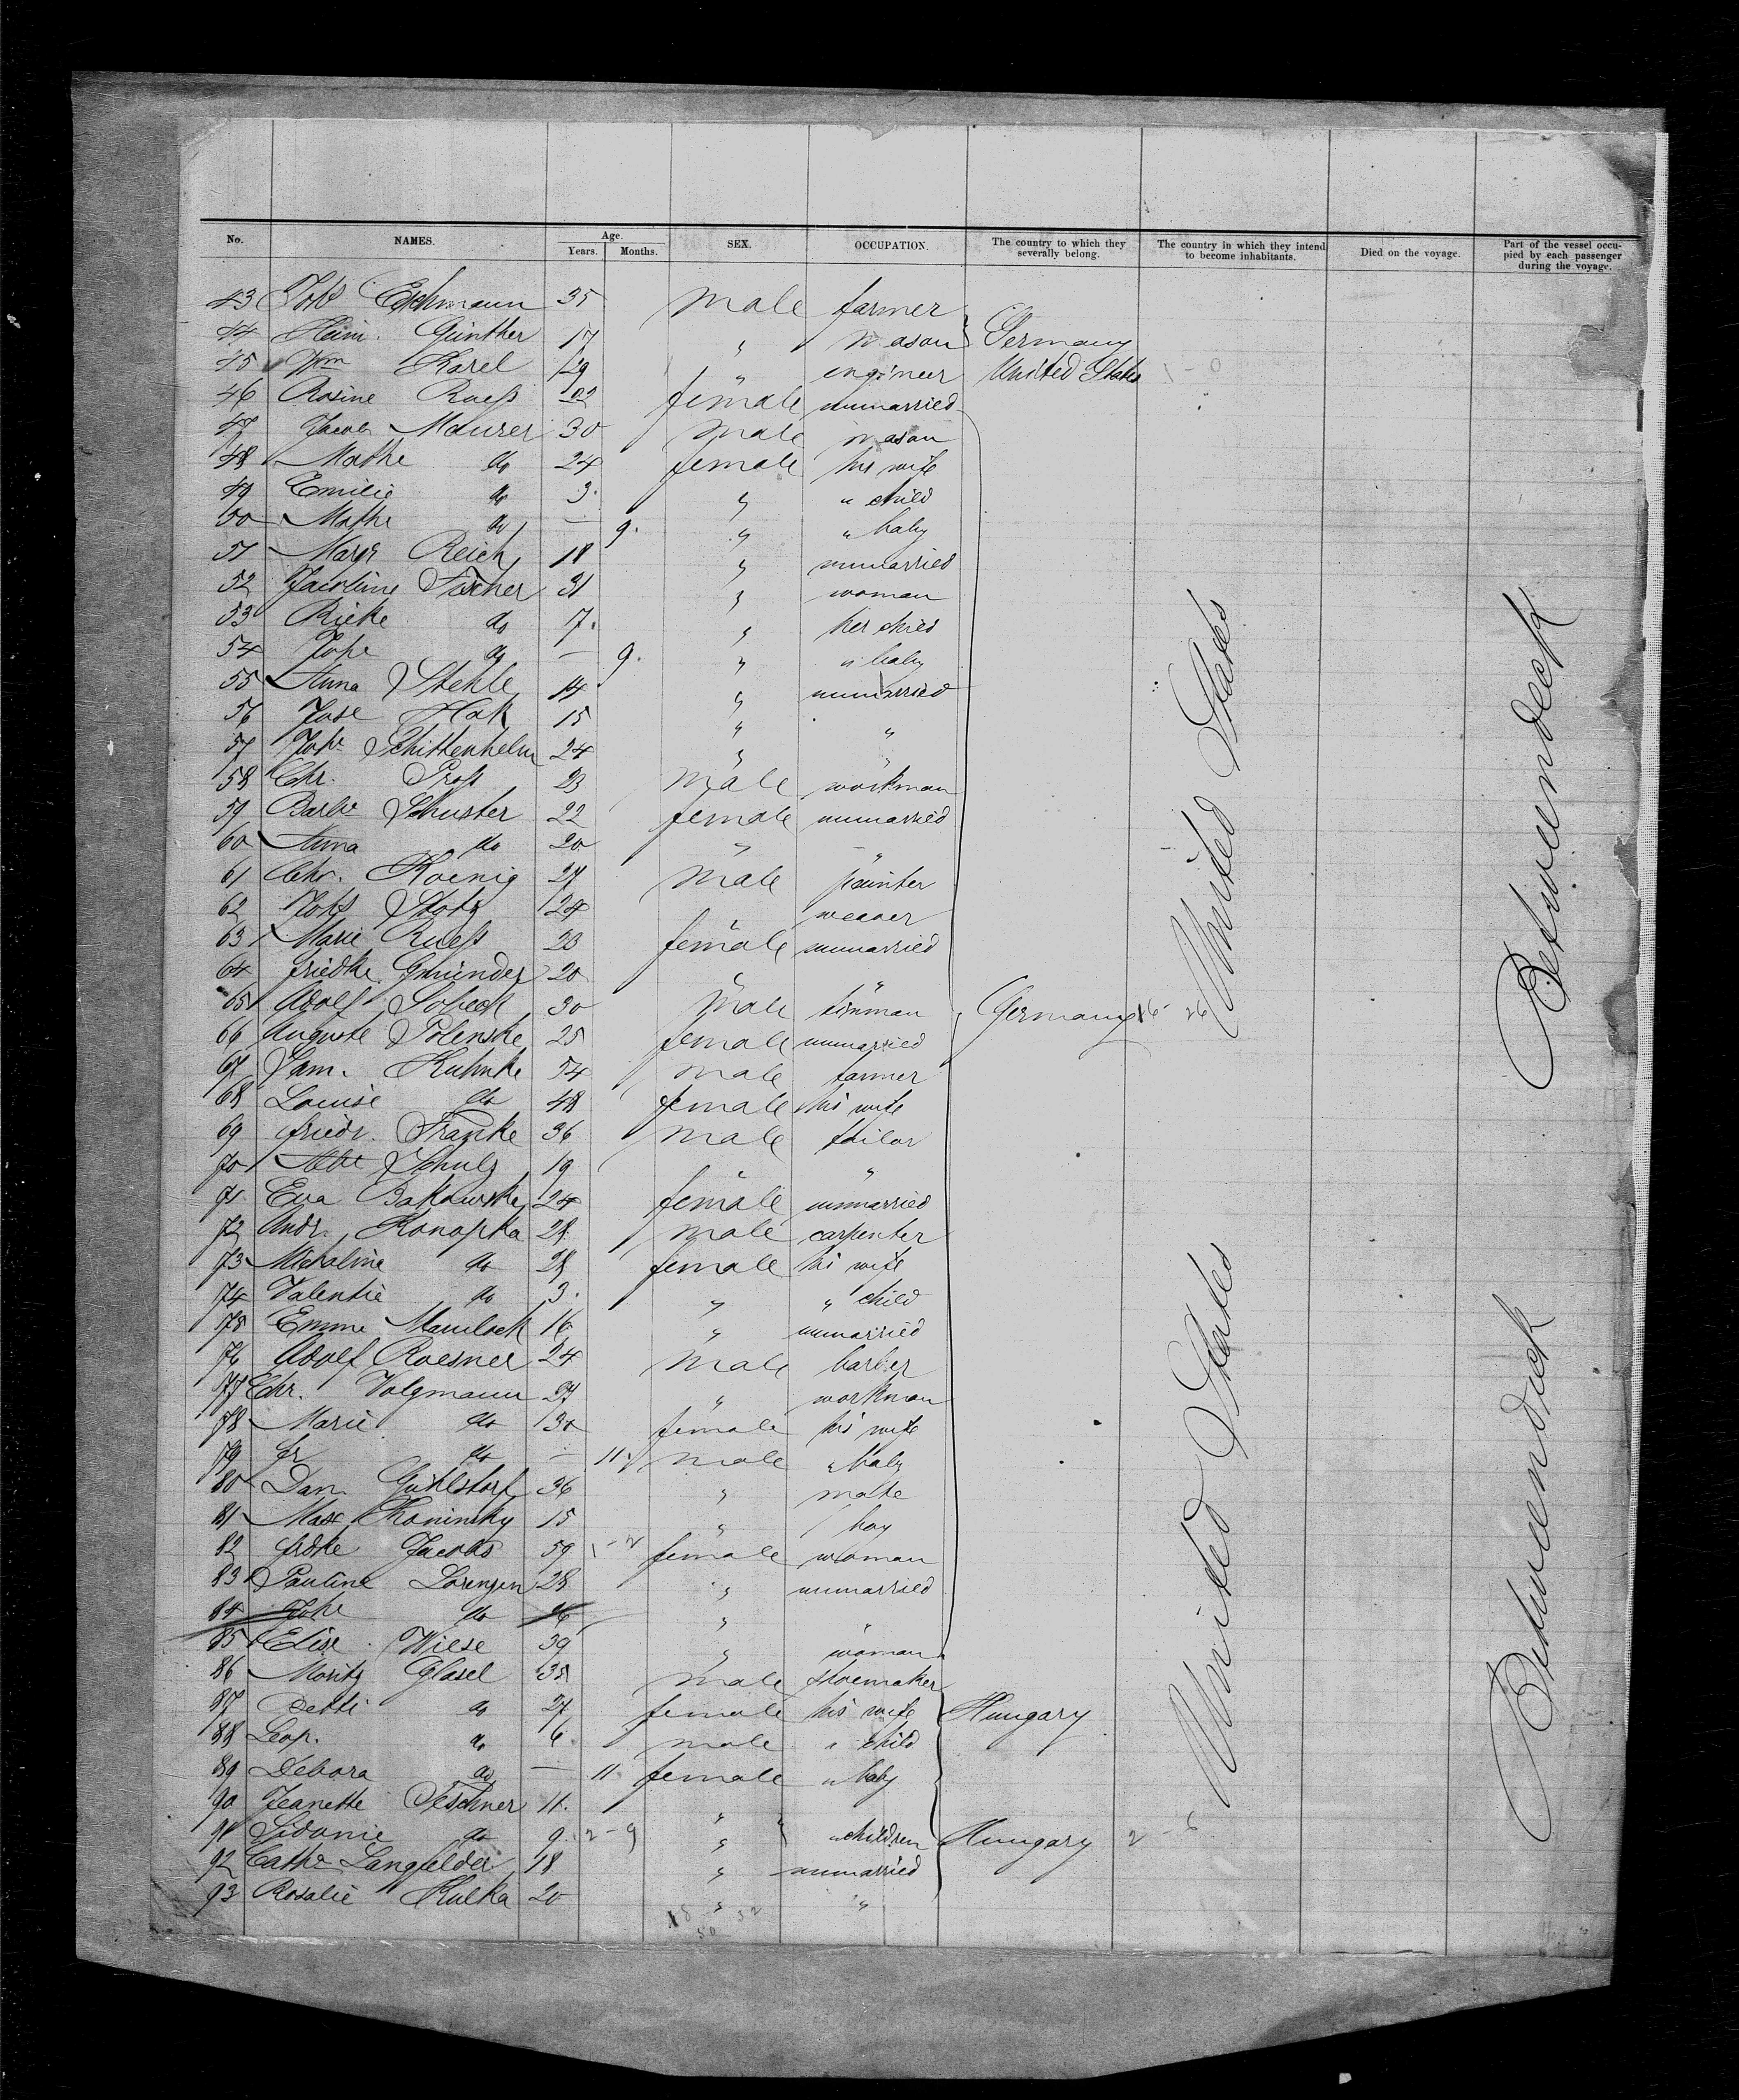 No. NAMES. Age. Years. Months. SEX. OCCUPATION. The country to which they severally belong. The country in which they intend to become inhabitants. Died on the voyage. Part of the vessel occupied by each passenger during the voyage.
43 Eschmann 35 male farmer
44 Heinr. Günther 17 " mason Germany
45 Wm Karel 29 " engineer United States
46 Rosine Rueß 22 female unmarried
47 Jacob Maurer 30 male mason
48 Mathe do 24 female his wife
49 Emilie do 3. " " child
50 Mathe do — 9. " " baby
51 Reich 18 " unmarried
52 Fischer 31 " woman
53 Rieke do 7. " her child
54 Johe do — 9. " " baby
55 Anna Stehle 14 " unmarried
56 Jose Hak 15 " "
57 Johe Schittenhelm 24 " "
58 Chr. Proß 23 male workman
59 Barbe Schuster 22 female unmarried
60 Anna do 20 " "
61 Chr. Koenig 27 male painter
62 Stotz 24 " weaver
63 Marie Rueß 23 female unmarried
64 Friedke Gmünder 20 " "
65 Adolf Sobeck 30 male tinman Germany
66 Auguste Polenske 25 female unmarried
67 Sam. Kuhnke 54 male farmer
68 Louise do 48 female his wife
69 Friedr. Franke 36 male tailor
70 Schulz 19 " "
71 Eva Bakowske 24 female unmarried
72 Andr. Konopka 28 male carpenter
73 Michaline do 28 female his wife
74 Valentie do 3. " " child
75 Emme 16 " unmarried
76 Adolf Roesner 24 male barber
77 Chr. Volgmann 27 " workman
78 Marie do 34 female his wife
79 do — 11. male " baby
80 Dan. Guhlstorf 36 " mate
81 Max Koninsky 15 " boy
82 Frdke Jacobs 59 female woman
83 Pauline Lorenzen 28 " unmarried
84 Johe do " "
85 Elise Wiese 39 " woman
86 Moritz Glasel 35 male shoemaker
87 Betti do 27 female his wife Hungary
88 Leop. do 6 male " child
89 Debora do — 11 female " baby
90 Jeanette Teschner 11. " "
91 Sidonie do 9. " " children Hungary
92 Cathe Langfelder 18 " unmarried
93 Rosalie Kulka 20 " "
United States
United States
Betweendeck
Betweendeck